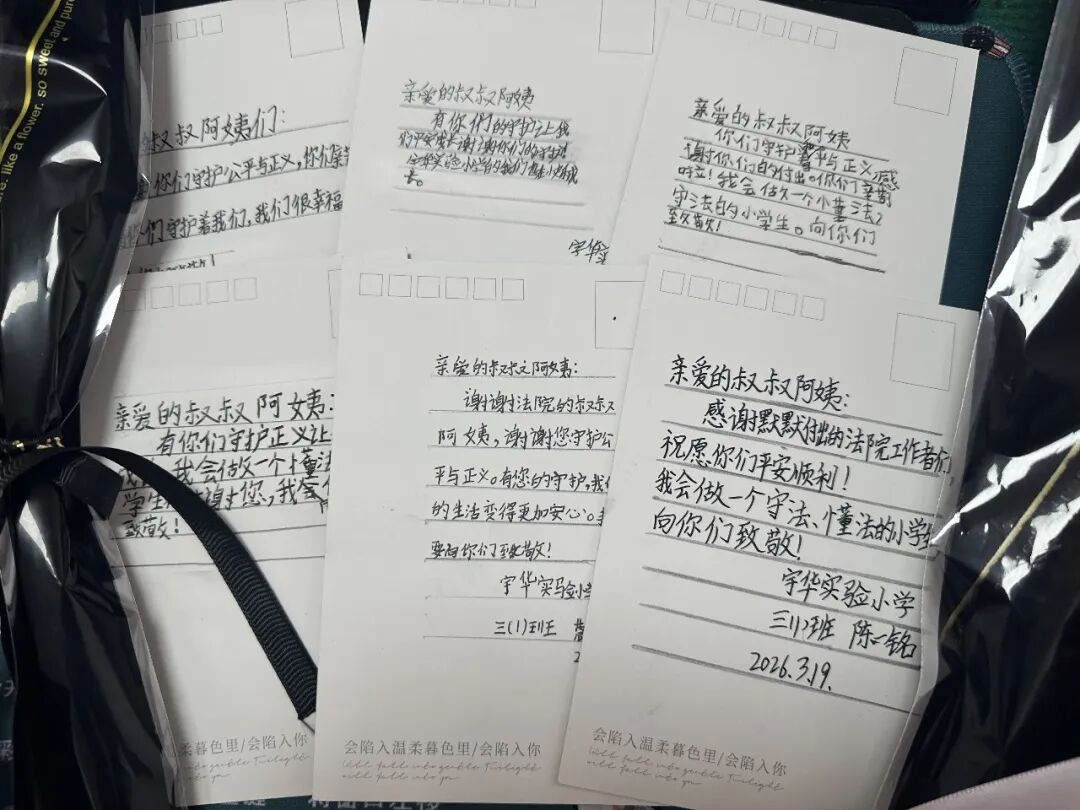 like a flower. so sweet and pure
叔叔阿姨们:
你们守护公平与正义,你们辛苦
们守护着我们,我们很幸福
亲爱的叔叔阿姨
有你们的守护让我
们平安成长谢谢你们的守护
宇华实验小学的我们
宇华实
亲爱的叔叔阿姨
你们守护着平与正义,感
谢你们的付出。你们辛苦
我会做一个小懂法
守法的小学生。向你们
致敬!
亲爱的叔叔阿姨:
有你们守护正义让
我会做一个懂法
学生
致敬!
亲爱的叔叔阿姨:
谢谢法院的叔叔
阿姨,谢谢您守护公
平与正义。有您的守护,我们
的生活变得更加安心。
要向你们致敬!
宇华实验小学
三(1)班
亲爱的叔叔阿姨:
感谢默默付出的法院工作者们
祝愿你们平安顺利!
我会做一个守法、懂法的小学生
向你们致敬!
宇华实验小学
三(1)班 陈一铭
2026.3.19.
柔暮色里/会陷入你
会陷入温柔暮色里/会陷入你
会陷入温柔暮色里/会陷入你